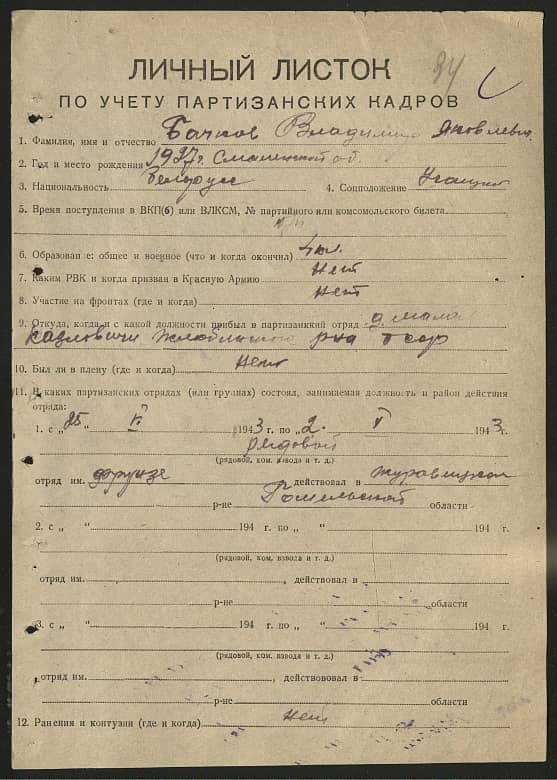 34
ЛИЧНЫЙ ЛИСТОК
ПО УЧЕТУ ПАРТИЗАНСКИХ КАДРОВ
1. Фамилия, имя и отчество Бачков Владимир Яковлевич
2. Год и место рождения 1927 г. Смоленской об.
3. Национальность белорусс 4. Соцположение учащийся
5. Время поступления в ВКП(б) или ВЛКСМ, № партийного или комсомольского билета
6. Образование: общее и военное (что и когда окончил) 4 кл.
7. Каким РВК и когда призван в Красную Армию нет
8. Участие на фронтах (где и когда) нет
9. Откуда, когда и с какой должности прибыл в партизанккий отряд д. мала
казловичи рна бсср
10. Был ли в плену (где и когда) нет
11. В каких партизанских отрядах (или группах) состоял, занимаемая должность и район действия
отряда:
1. с „25 " 1943 г. по „2. " V 1943 г.
рядовой
(рядовой, ком. взвода и т. д.)
отряд им. фрунзе действовал в журавицком
р-не Гомельской области
2. с „ " 194 г. по „ " 194 г.
(рядовой, ком. взвода и т. д.)
отряд им. , действовал в
р-не области
3. с „ " 194 г. по „ " 194 г.
(рядовой, ком. взвода и т. д.)
отряд им. , действововал в
р-не области
12. Ранения и контузии (где и когда) нет